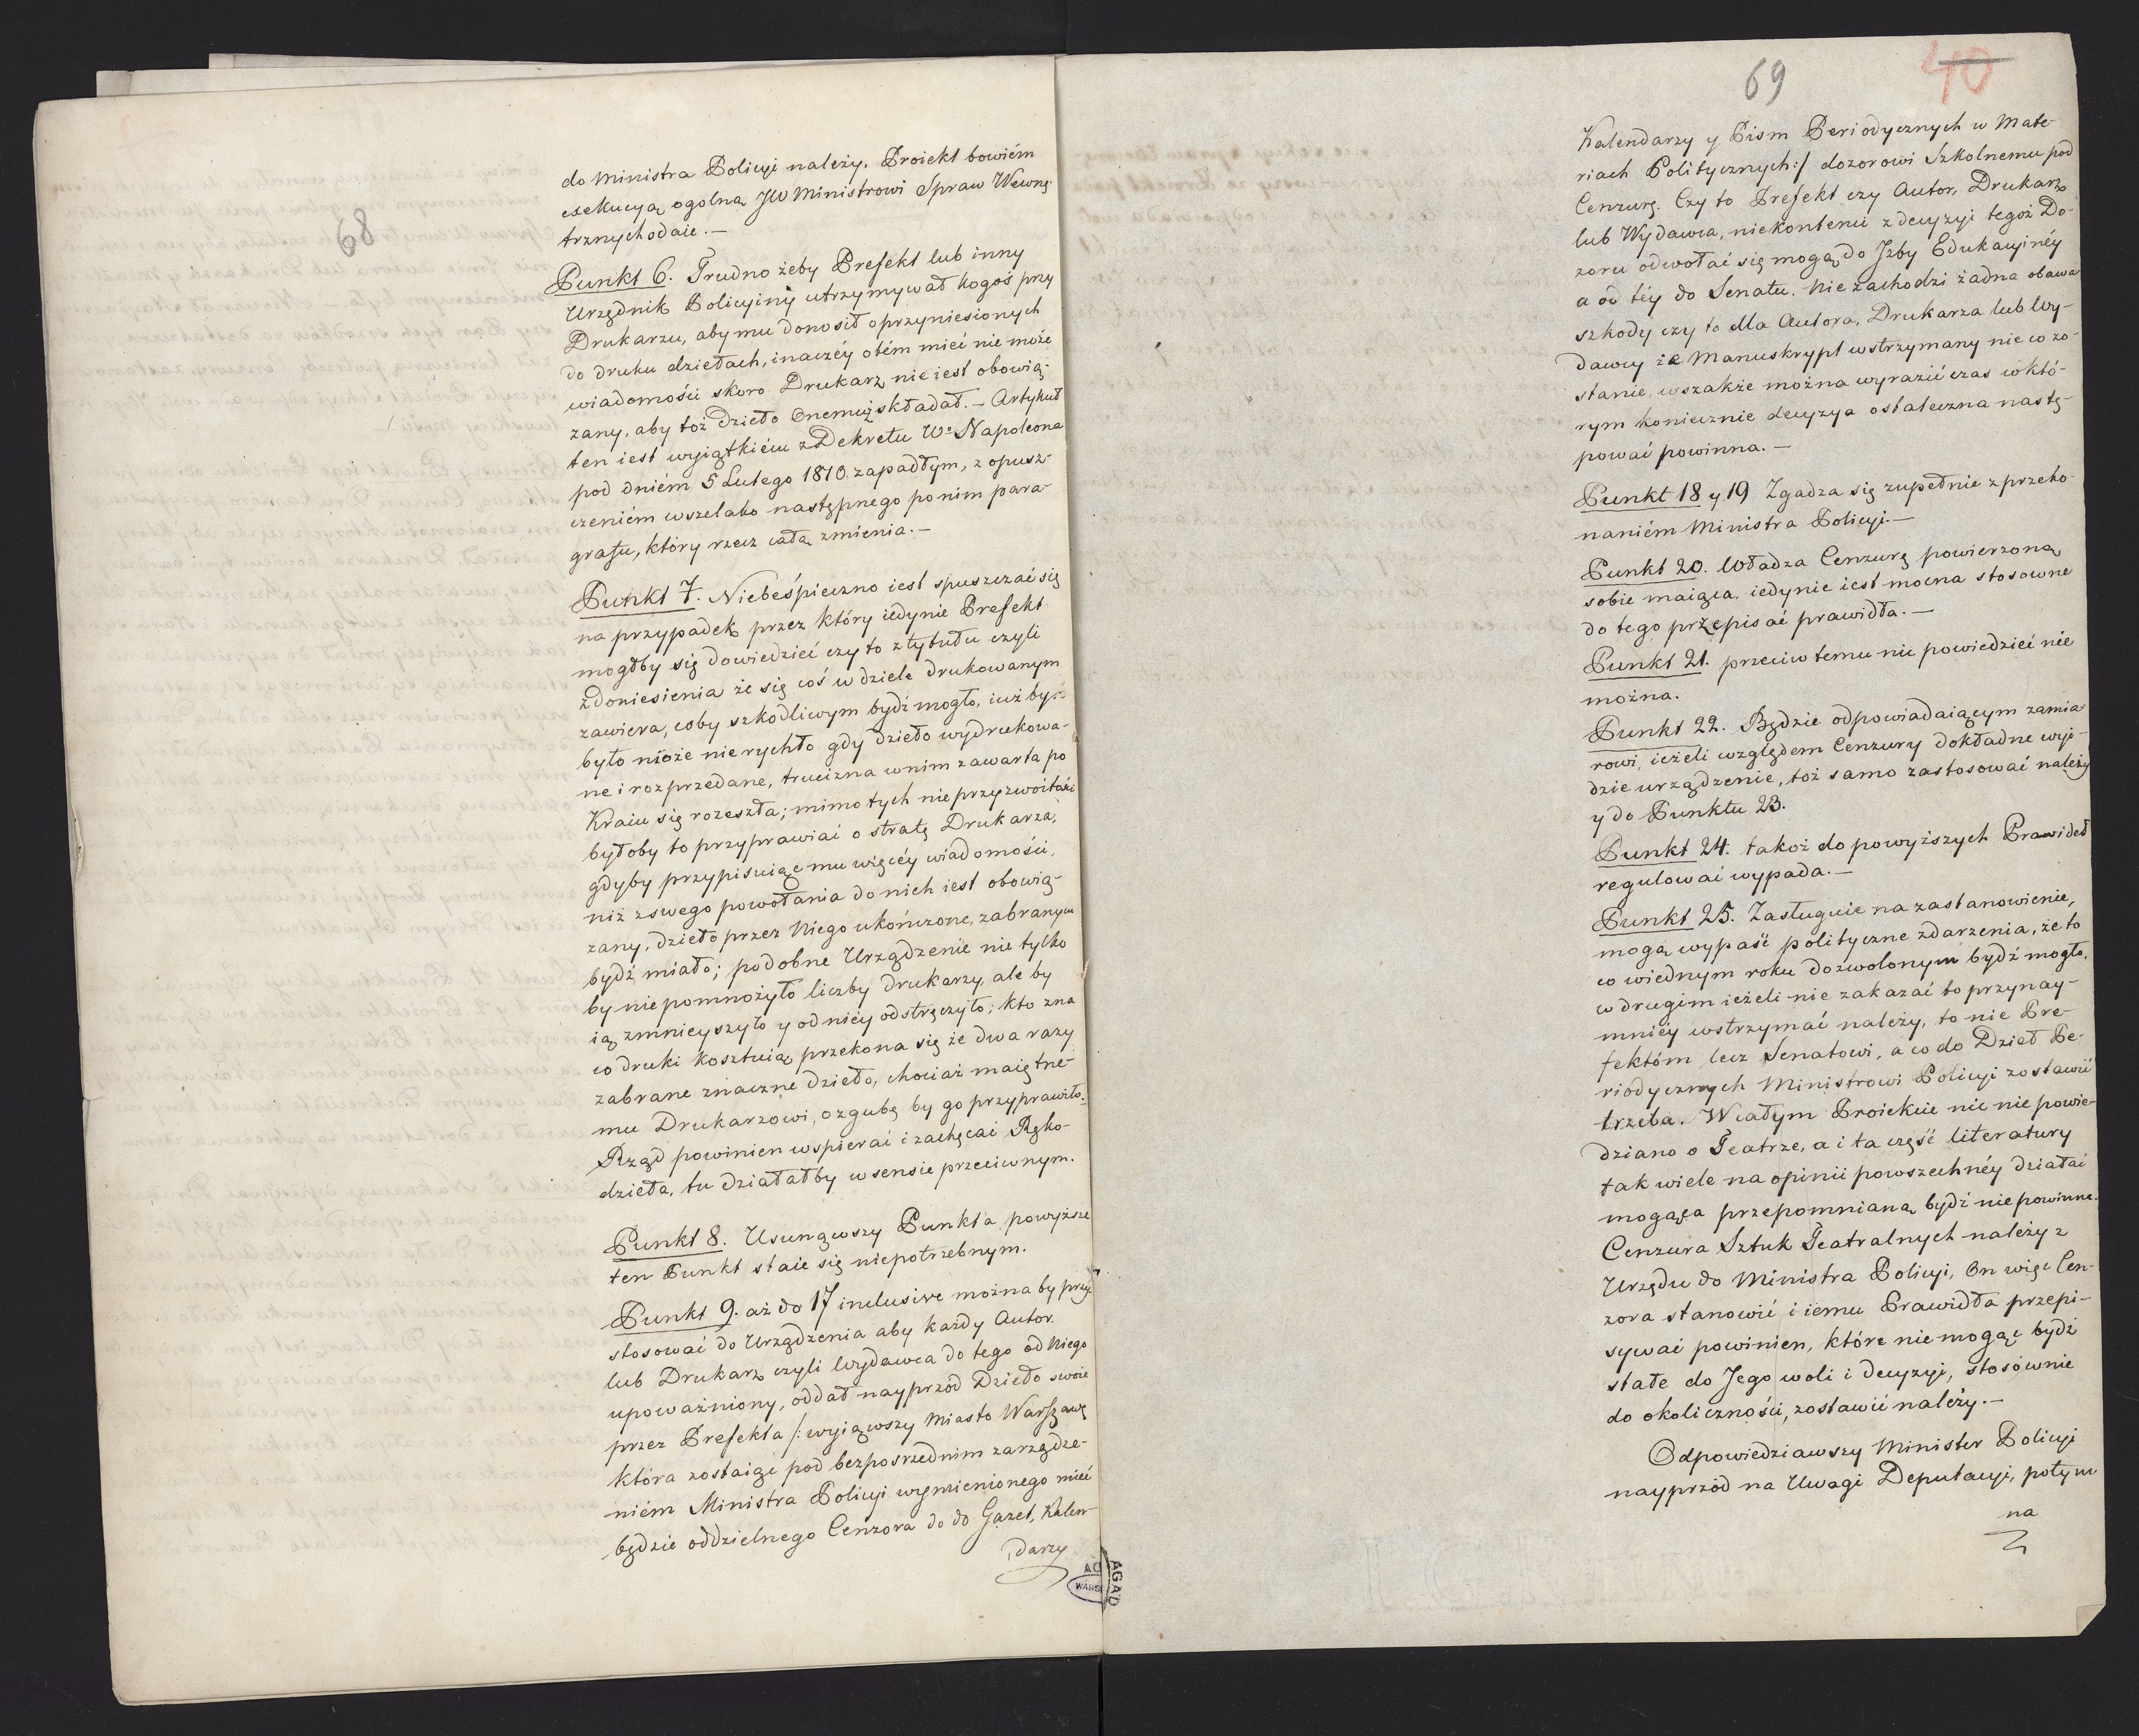 68
do Ministra Policyi należy. Proiekt bowiém
exekucyą ogolną JW Ministrowi Spraw Wewnę-
trznych odaie. —
Punkt 6. Trudno żeby Prefekt lub inny
Urzędnik Policyiny utrzymywał kogoś przy
Drukarzu, aby mu donosił o przyniesionych
do druku dziełach, inaczéy o tém mieć nie może
wiadomości skoro Drukarz nie iest obowią-
zany, aby toż Dzieło Onemuż składał. — Artykuł
ten iest wyiątkiém z Dekretu Wo Napoleona
pod dniém 5 Lutego 1810. zapadłym, z opusz-
czeniém wszelako następnego po nim para-
grafu, który rzecz całą zmienia. —
Punkt 7. Niebeśpieczno iest spuszczać się
na przypadek przez który iedynie Prefekt
mogłby się dowiedzieć czy to z tytułu czyli
z doniesienia że się coś w dziele drukowanym
zawiera, coby szkodliwym bydź mogło, iuż by
było może nie rychło gdy dzieło wydrukowa-
ne i rozprzedane, trucizna w nim zawarta po
Kraiu się rozeszła; mimo tych nieprzyzwoitości
byłoby to przyprawiać o stratę Drukarza,
gdyby przypisuiąc mu więcéy wiadomości,
niż z swego powołania do nich iest obowią-
zany, dzieło przez Niego ukończone, zabranym
bydź miało; podobne Urządzenie nie tylko
by nie pomnożyło liczby drukarzy, ale by
ią zmnieyszyło y od niéy odstręczyło; kto zna
co druki kosztuią przekona się że dwa razy
zabrane znaczne dzieło, chociaż maiętne-
mu Drukarzowi, o zgubę by go przyprawiło.
Rząd powinien wspierać i zachęcać Ręko-
dzieła, tu działałby w sensie przeciwnym.
Punkt 8. Usunąwszy Punkta powyższe
ten Punkt staie się niepotrzebnym.
Punkt 9. aż do 17 inclusive można by przy-
stosować do Urządzenia aby każdy Autor
lub Drukarz czyli Wydawca do tego od Niego
upoważniony, oddał nayprzod Dzieło swoie
przez Prefekta /: wyiąwszy Miasto Warszawę
która zostaiąc pod bezposrzednim zarządze-
niém Ministra Policyi wymienionego mieć
będzie oddzielnego Cenzora do do Gazet, Kalen-
darzy
AGAD
69
40
Kalendarzy y Pism Periodycznych w Mate-
riach Politycznych :/ dozorowi Szkolnemu pod
Cenzurę. Czy to Prefekt czy Autor, Drukarz
lub Wydawca, niekontenci z decyzyi tegoż Do-
zoru odwołać się mogą do Izby Edukacyinéy
a od téy do Senatu. Nie zachodzi żadna obawa
szkody czy to dla Autora, Drukarza lub Wy-
dawcy że Manuskrypt wstrzymany nieco zo-
stanie, wszakże można wyrazić czas w któ-
rym koniecznie decyzya ostateczna nastę-
pować powinna. —
Punkt 18 y 19 Zgadza się zupełnie z przeko-
naniém Ministra Policyi. —
Punkt 20. Władza Cenzurę powierzoną
sobie maiąca, iedynie iest mocna stosowne
do tego przepisać prawidła. —
Punkt 21. przeciw temu nic powiedzieć nie
można.
Punkt 22. Będzie odpowiadaiącym zamia-
rowi, ieżeli względem Cenzury dokładne wyj-
dzie urządzenie, toż samo zastosować należy
y do Punktu 23.
Punkt 24. takoż do powyższych Prawideł
regulować wypada. —
Punkt 25. Zasługuie na zastanowienie,
mogą wypaść polityczne zdarzenia, że to
co w iednym roku dozwolonym bydź mogło,
w drugim ieżeli nie zakazać to przynay-
mniéy wstrzymać należy, to nie Pre-
fektóm lecz Senatowi, a co do Dzieł Pe-
riodycznych Ministrowi Policyi zostawić
trzeba. W całym Proiekcie nic nie powie-
dziano o Teatrze, a i ta część literatury
tak wiele na opinii powszechnéy działać
mogąca przepomnianą bydź nie powinna.
Cenzura Sztuk Teatralnych należy z
Urzędu do Ministra Policyi, On więc Cen-
zora stanowić i iemu Prawidła przepi-
sywać powinien, które nie mogąc bydź
stałe do Jego woli i decyzyi, stosównie
do okoliczności, zostawić należy. —
Odpowiedziawszy Minister Policyi
nayprzód na Uwagi Deputacyi, potym
na